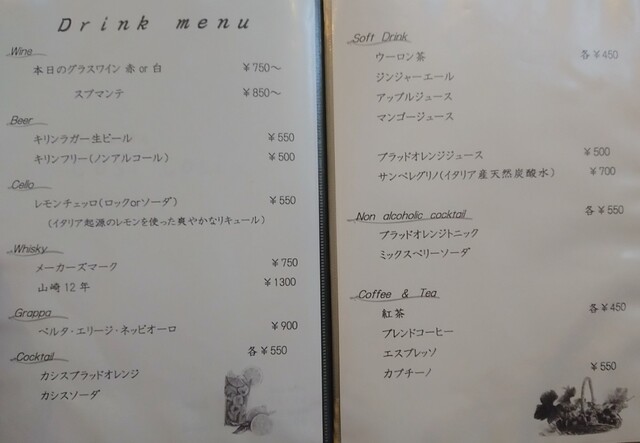 Drink menu
Wine
本日のグラスワイン 赤 or 白 ￥750～
スプマンテ ￥850～
Beer
キリンラガー生ビール ￥550
キリンフリー(ノンアルコール) ￥500
Cello
レモンチェッロ(ロックorソーダ) ￥550
(イタリア起源のレモンを使った爽やかなリキュール)
Whisky
メーカーズマーク ￥750
山崎12年 ￥1300
Grappa
ベルタ・エリージ・ネッビオーロ ￥900
Cocktail 各￥550
カシスブラッドオレンジ
カシスソーダ
Soft Drink
ウーロン茶 各￥450
ジンジャーエール
アップルジュース
マンゴージュース
ブラッドオレンジジュース ￥500
サンペレグリノ(イタリア産天然炭酸水) ￥700
Non alcoholic cocktail 各￥550
ブラッドオレンジトニック
ミックスベリーソーダ
Coffee & Tea
紅茶 各￥450
ブレンドコーヒー
エスプレッソ
カプチーノ ￥550